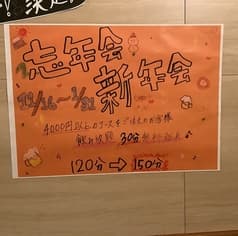 忘年会
新年会
12/16〜1/31
4000円以上のコースをご注文のお客様
飲み放題 30分無料延長♪
120分⇒150分